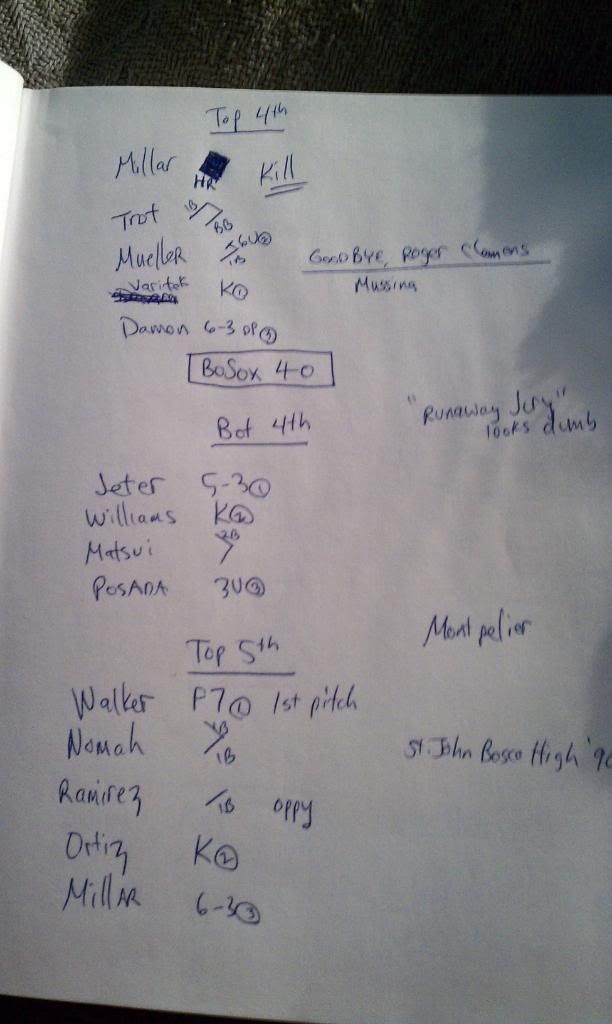 Top 4th
Millar HR Kill
Trot 1B BB
Mueller 6U② 1B
GoodBye, Roger Clemens
Varitek K①
Mussina
Damon 6-3 DP③
BoSox 4-0
"Runaway Jury"
looks dumb
Bot 4th
Jeter 5-3①
Williams K②
Matsui 2B
Posada 3U③
Montpelier
Top 5th
Walker F7① 1st pitch
Nomah 1B
St. John Bosco High '90
Ramirez 1B oppy
Ortiz K②
Millar 6-3③